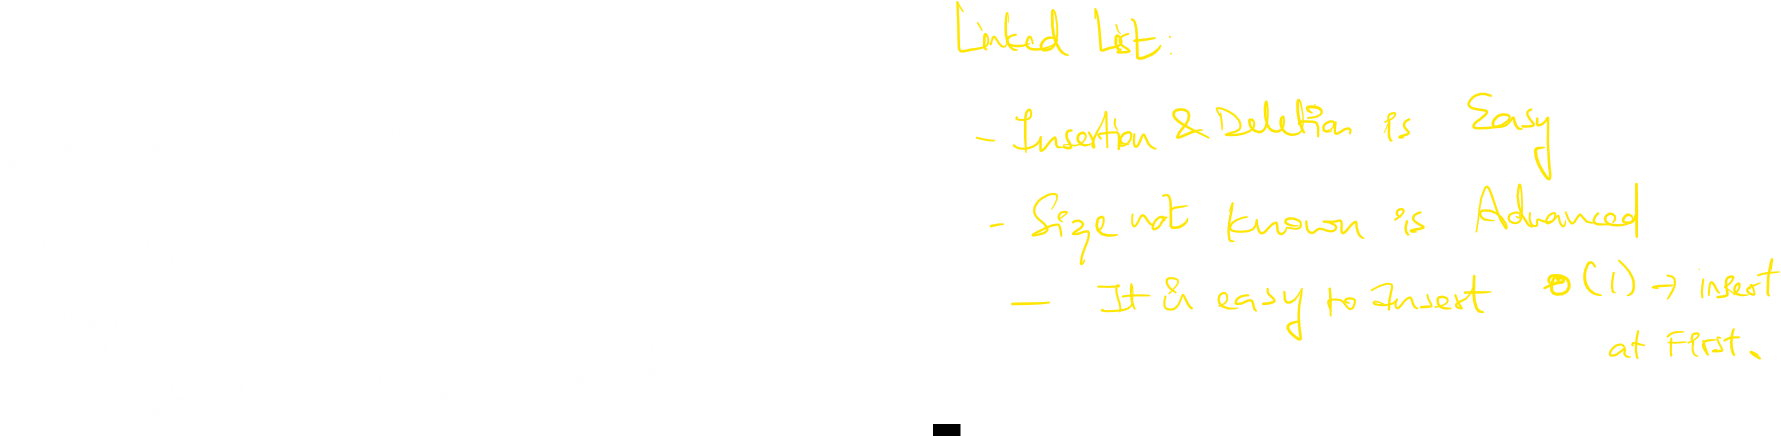 Linked List:
- Insertion & Deletion is Easy
- Size not known is Advanced
- It is easy to Insert O(1) → insert
at First.